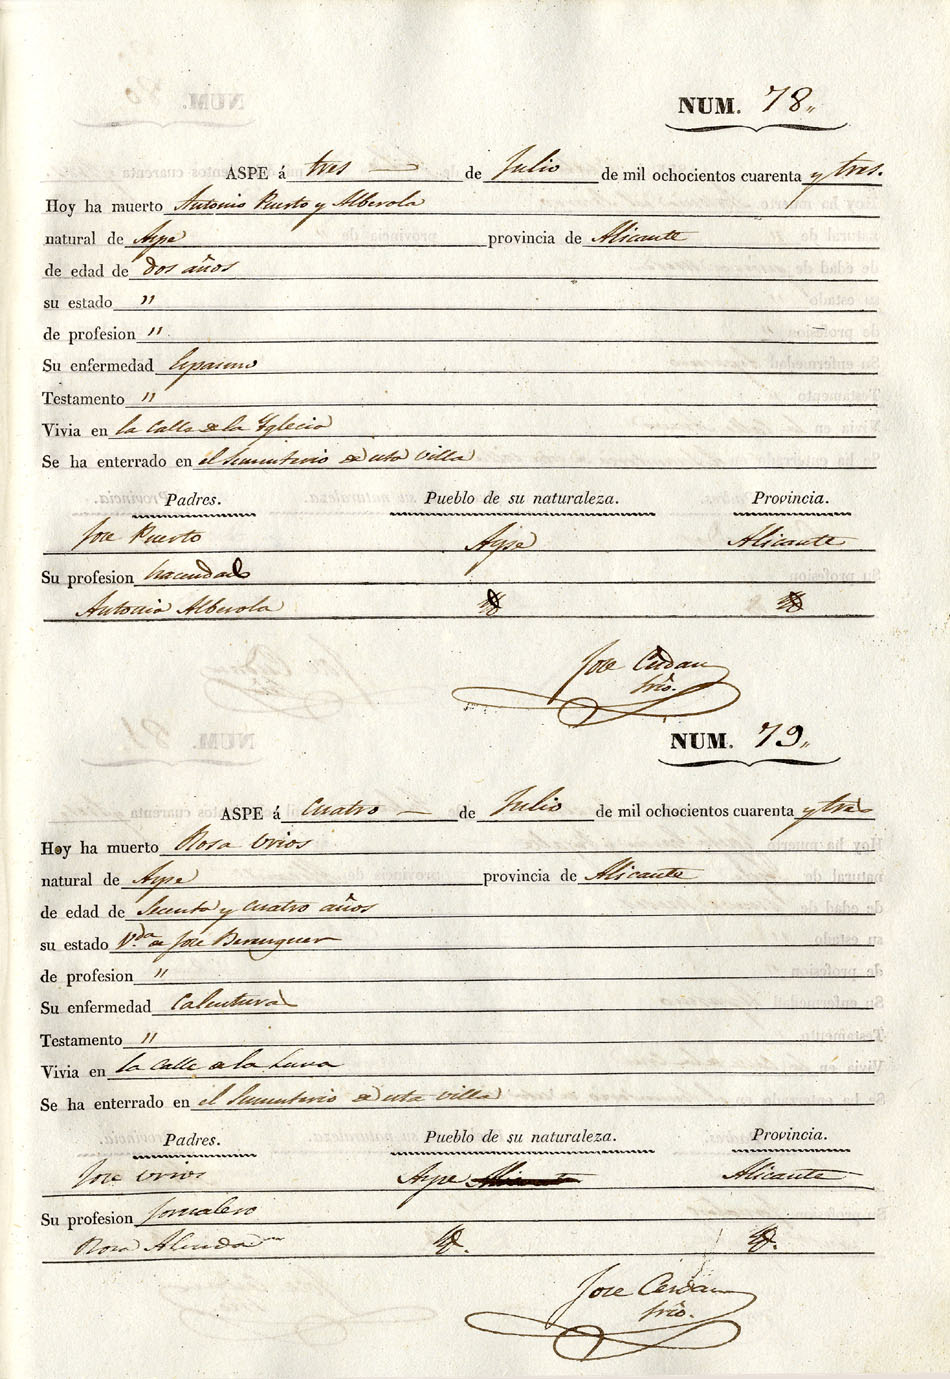 NUM. 78.
ASPE á tres de Julio de mil ochocientos cuarenta y tres.
Hoy ha muerto Antonio Puerto y Alberola
natural de Aspe provincia de Alicante
de edad de dos años
su estado "
de profesion "
Su enfermedad Espasmo
Testamento "
Vivia en la Calle de la Yglecia
Se ha enterrado en el Sementerio de esta villa
Padres. Pueblo de su naturaleza. Provincia.
Jose Puerto Aspe Alicante
Su profesion hacendado
Antonia Alberola Yd Yd
Jose Cerdan
Srio.
NUM. 79.
ASPE á Cuatro de Julio de mil ochocientos cuarenta y tres
Hoy ha muerto Rosa Orios
natural de Aspe provincia de Alicante
de edad de Secenta y cuatro años
su estado Vda de Jose Berenguer
de profesion "
Su enfermedad Calentura
Testamento "
Vivia en La Calle de la Luna
Se ha enterrado en el Sementerio de esta villa
Padres. Pueblo de su naturaleza. Provincia.
Jose Orios Aspe Alicante
Su profesion Jornalero
Rosa Alenda Yd. Yd.
Jose Cerdan
Srio.